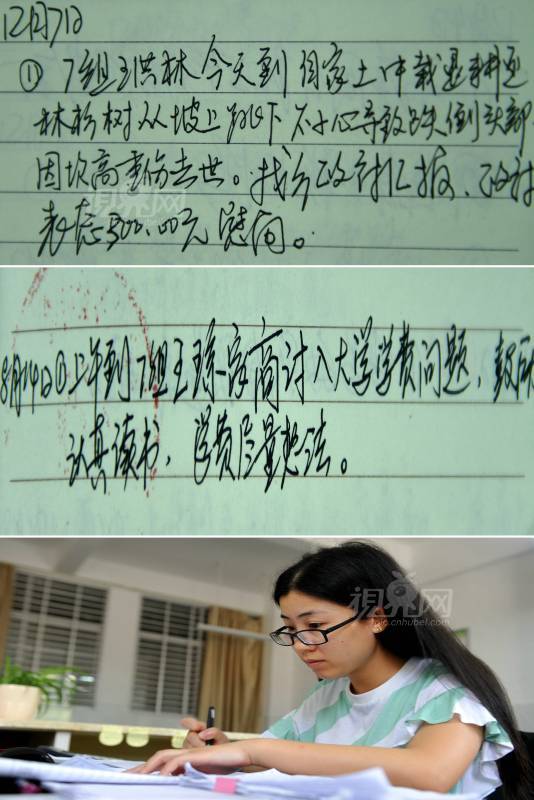 12月7日
① 7组王洪林今天到自家土中栽
林杉树从坡上跳下不小心导致跌倒头部
因坎高重伤去世。找乡政府汇报、政府
表态500.00元慰问。
視界网
8月14日①上午到7组王琼家商讨入大学学费问题,鼓励
认真读书,学费尽量想法。
視界网
pic.cnhubei.com